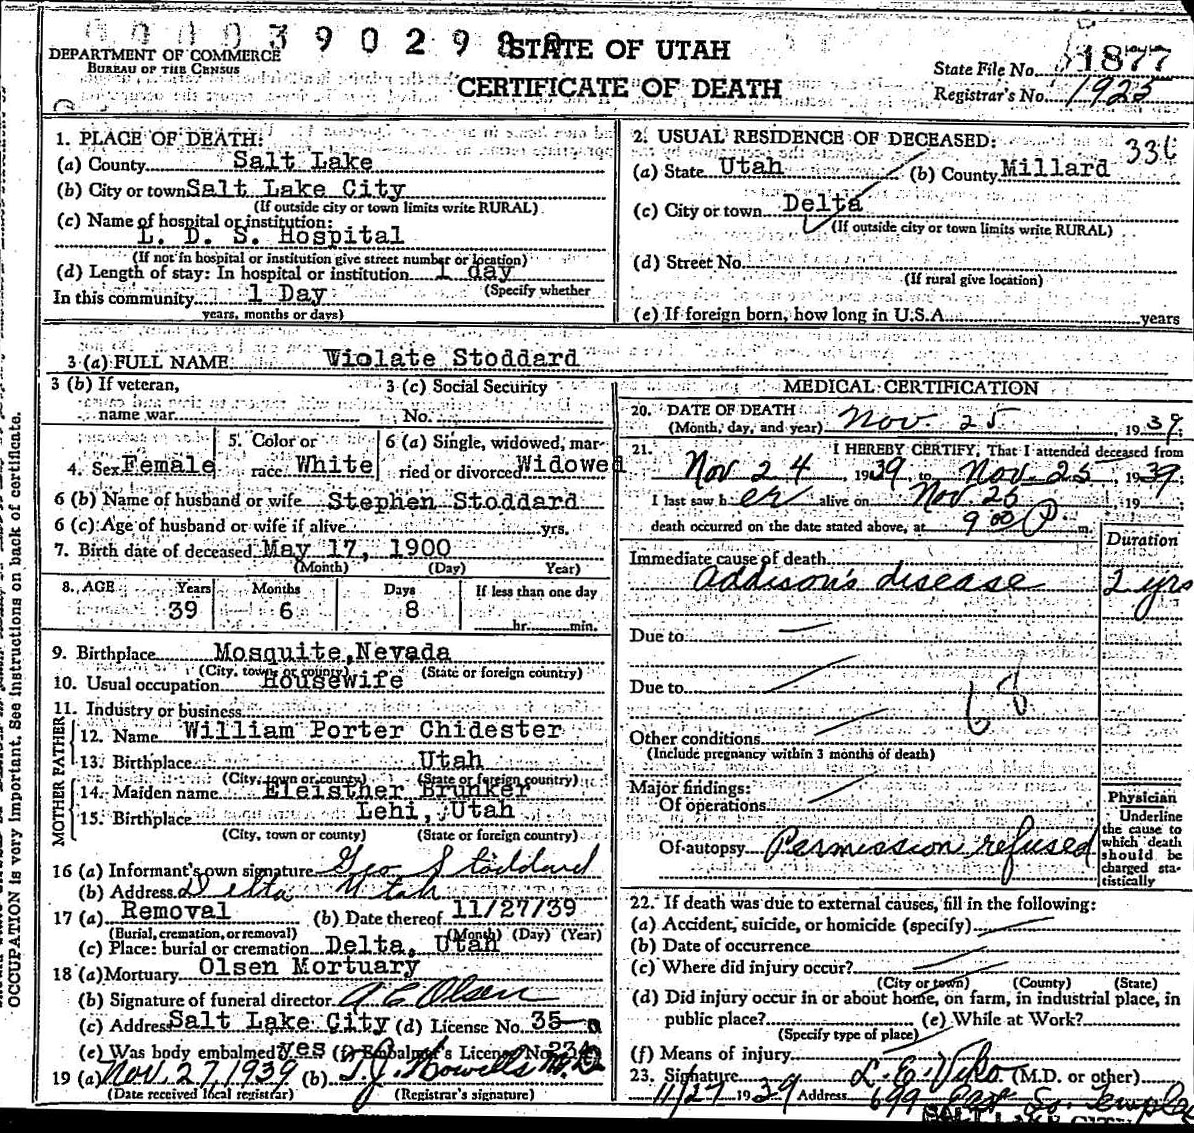 STATE OF UTAH
CERTIFICATE OF DEATH
DEPARTMENT OF COMMERCE
BUREAU OF THE CENSUS
State File No. 1877
Registrar's No. 1925
1. PLACE OF DEATH:
(a) County Salt Lake
(b) City or town Salt Lake City
(If outside city or town limits write RURAL)
(c) Name of hospital or institution:
L. D. S. Hospital
(If not in hospital or institution give street number or location)
(d) Length of stay: In hospital or institution 1 day
(Specify whether
In this community 1 Day
years, months or days)
2. USUAL RESIDENCE OF DECEASED:
(a) State Utah (b) County Millard
(c) City or town Delta
(If outside city or town limits write RURAL)
(d) Street No.
(If rural give location)
(e) If foreign born, how long in U.S.A. years
3 (a) FULL NAME Wiolate Stoddard
3 (b) If veteran,
name war
3 (c) Social Security
No.
4. Sex Female
5. Color or
race White
6 (a) Single, widowed, mar-
ried or divorced Widowed
6 (b) Name of husband or wife Stephen Stoddard
6 (c) Age of husband or wife if alive yrs.
7. Birth date of deceased May 17, 1900
(Month) (Day) Year)
8. AGE Years Months Days If less than one day
39 6 8 hr. min.
9. Birthplace Mosquite, Nevada
(City, town or county) (State or foreign country)
10. Usual occupation Housewife
11. Industry or business
FATHER
12. Name William Porter Chidester
13. Birthplace Utah
(City, town or county) (State or foreign country)
MOTHER
14. Maiden name Eleisther Brunker
15. Birthplace Lehi, Utah
(City, town or county) (State or foreign country)
16 (a) Informant's own signature Geo Stoddard
(b) Address Delta Utah
17 (a) Removal (b) Date thereof 11/27/39
(Burial, cremation, or removal) (Month) (Day) (Year)
(c) Place: burial or cremation Delta, Utah
18 (a) Mortuary Olsen Mortuary
(b) Signature of funeral director A C Olsen
(c) Address Salt Lake City (d) License No. 35
(e) Was body embalmed? yes (f) Embalmer's License No.
19 (a) Nov. 27, 1939 (b) T. J. Howells M.D.
(Date received local registrar) (Registrar's signature)
MEDICAL CERTIFICATION
20. DATE OF DEATH
(Month, day, and year) Nov. 25, 1939
21. I HEREBY CERTIFY, That I attended deceased from
Nov 24, 1939 to Nov. 25, 1939;
I last saw her alive on Nov 25, 19
death occurred on the date stated above, at 9 00 P m.
Duration
Immediate cause of death
Addison's disease 2 yrs
Due to
Due to
68
Other conditions
(Include pregnancy within 3 months of death)
Major findings:
Of operations
Of autopsy Permission refused
Physician
Underline
the cause to
which death
should be
charged sta-
tistically
22. If death was due to external causes, fill in the following:
(a) Accident, suicide, or homicide (specify)
(b) Date of occurrence
(c) Where did injury occur?
(City or town) (County) (State)
(d) Did injury occur in or about home, on farm, in industrial place, in
public place? (e) While at Work?
(Specify type of place)
(f) Means of injury
23. Signature L. E. Viko (M.D. or other)
11/27 1939 Address 699 East So. Temple
SALT LAKE CITY
OCCUPATION is very important. See instructions on back of certificate.